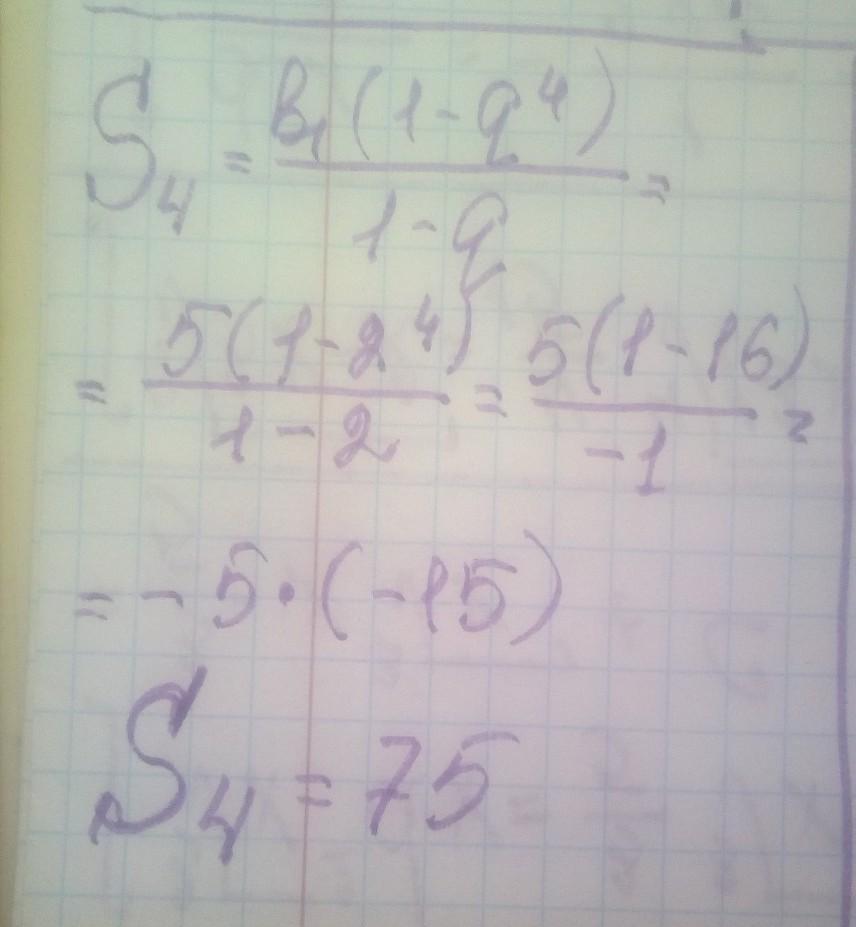 S₄ = b₁(1-q⁴)/1-q =
= 5(1-2⁴)/1-2 = 5(1-16)/-1 =
= -5·(-15)
S₄ = 75